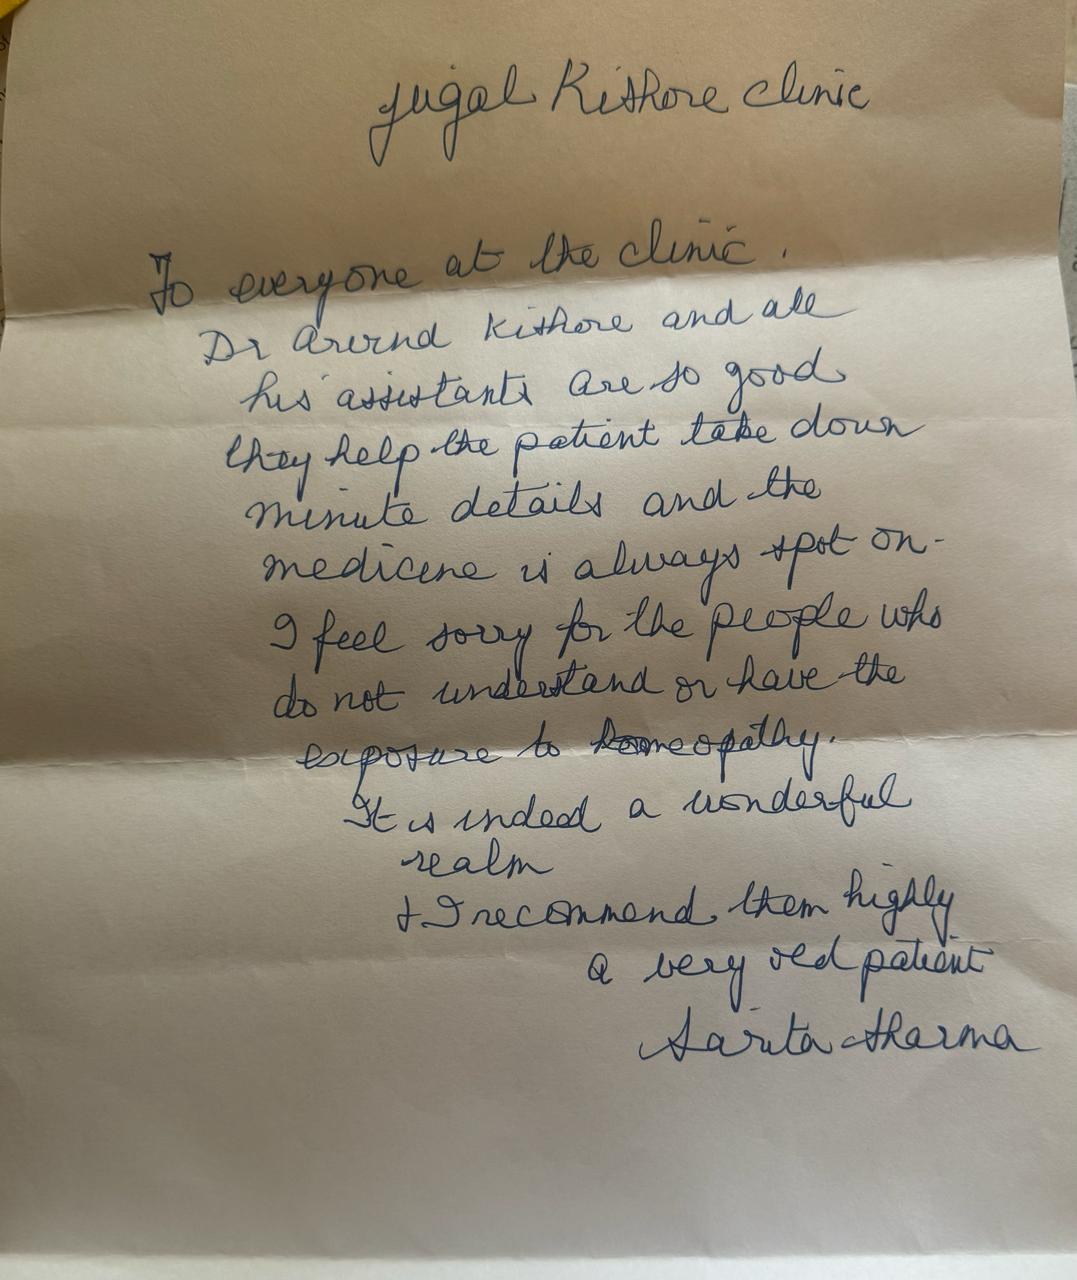 Jugal Kishore clinic
To everyone at the clinic.
Dr Arvind Kishore and all
his assistants are so good
they help the patient take down
minute details and the
medicine is always spot on-
I feel sorry for the people who
do not understand or have the
exposure to homeopathy.
It is indeed a wonderful
realm
& I recommend them highly
a very old patient
Sarita Sharma